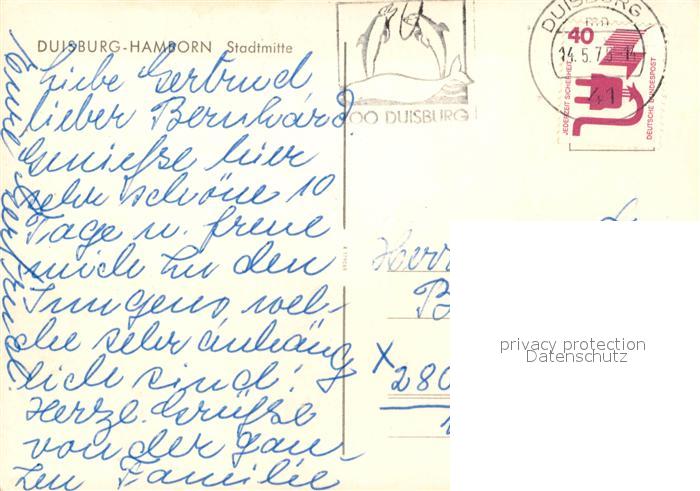 DUISBURG-HAMBORN Stadtmitte
Liebe Gertrud,
lieber Bernhard.
Genieße hier
sehr schöne 10
Tage u. freue
mich zu den
Jungens, wel-
che sehr anhäng
lich sind!
Herzl. Grüße
von der gan-
zen Familie
Eure
ZOO DUISBURG
DUISBURG
14.5.75-14
41
40
JEDERZEIT SICHERHEIT
DEUTSCHE BUNDESPOST
Herr
B
x 280
privacy protection
Datenschutz